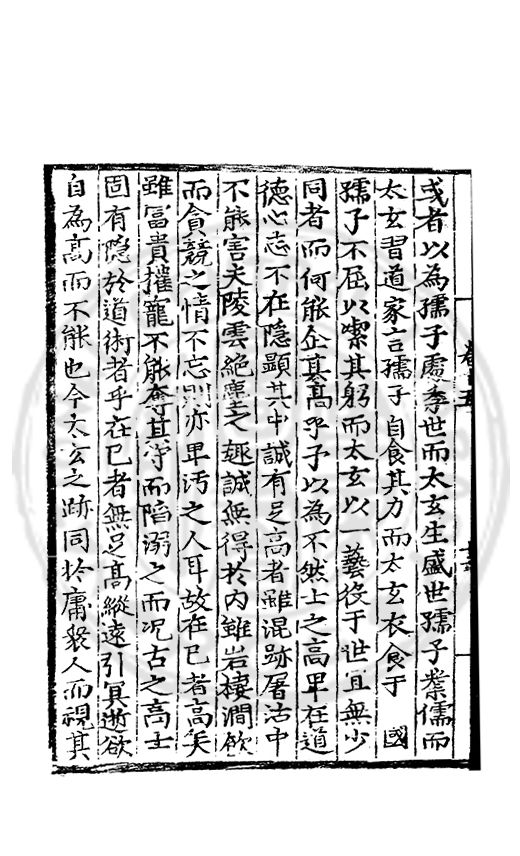 或者以為孺子處季世而太玄生盛世孺子業儒而
太玄習道家言孺子自食其力而太玄衣食于 國
孺子不屈以潔其躬而太玄以一藝役于世宜無少
同者而何能企其高乎予以為不然士之高卑在道
德心志不在隱顯其中誠有足高者雖混跡屠沽中
不能害夫陵雲絕塵之趣誠無得於內雖岩棲澗飲
而貪競之情不忘則亦卑汚之人耳故在已者高矣
雖冨貴摧寵不能奪其守而陷溺之而况古之高士
固有隐於道術者乎在已者無足高縱遠引冥逝欲
自為高而不能也今太玄之跡同於庸衆人而視其